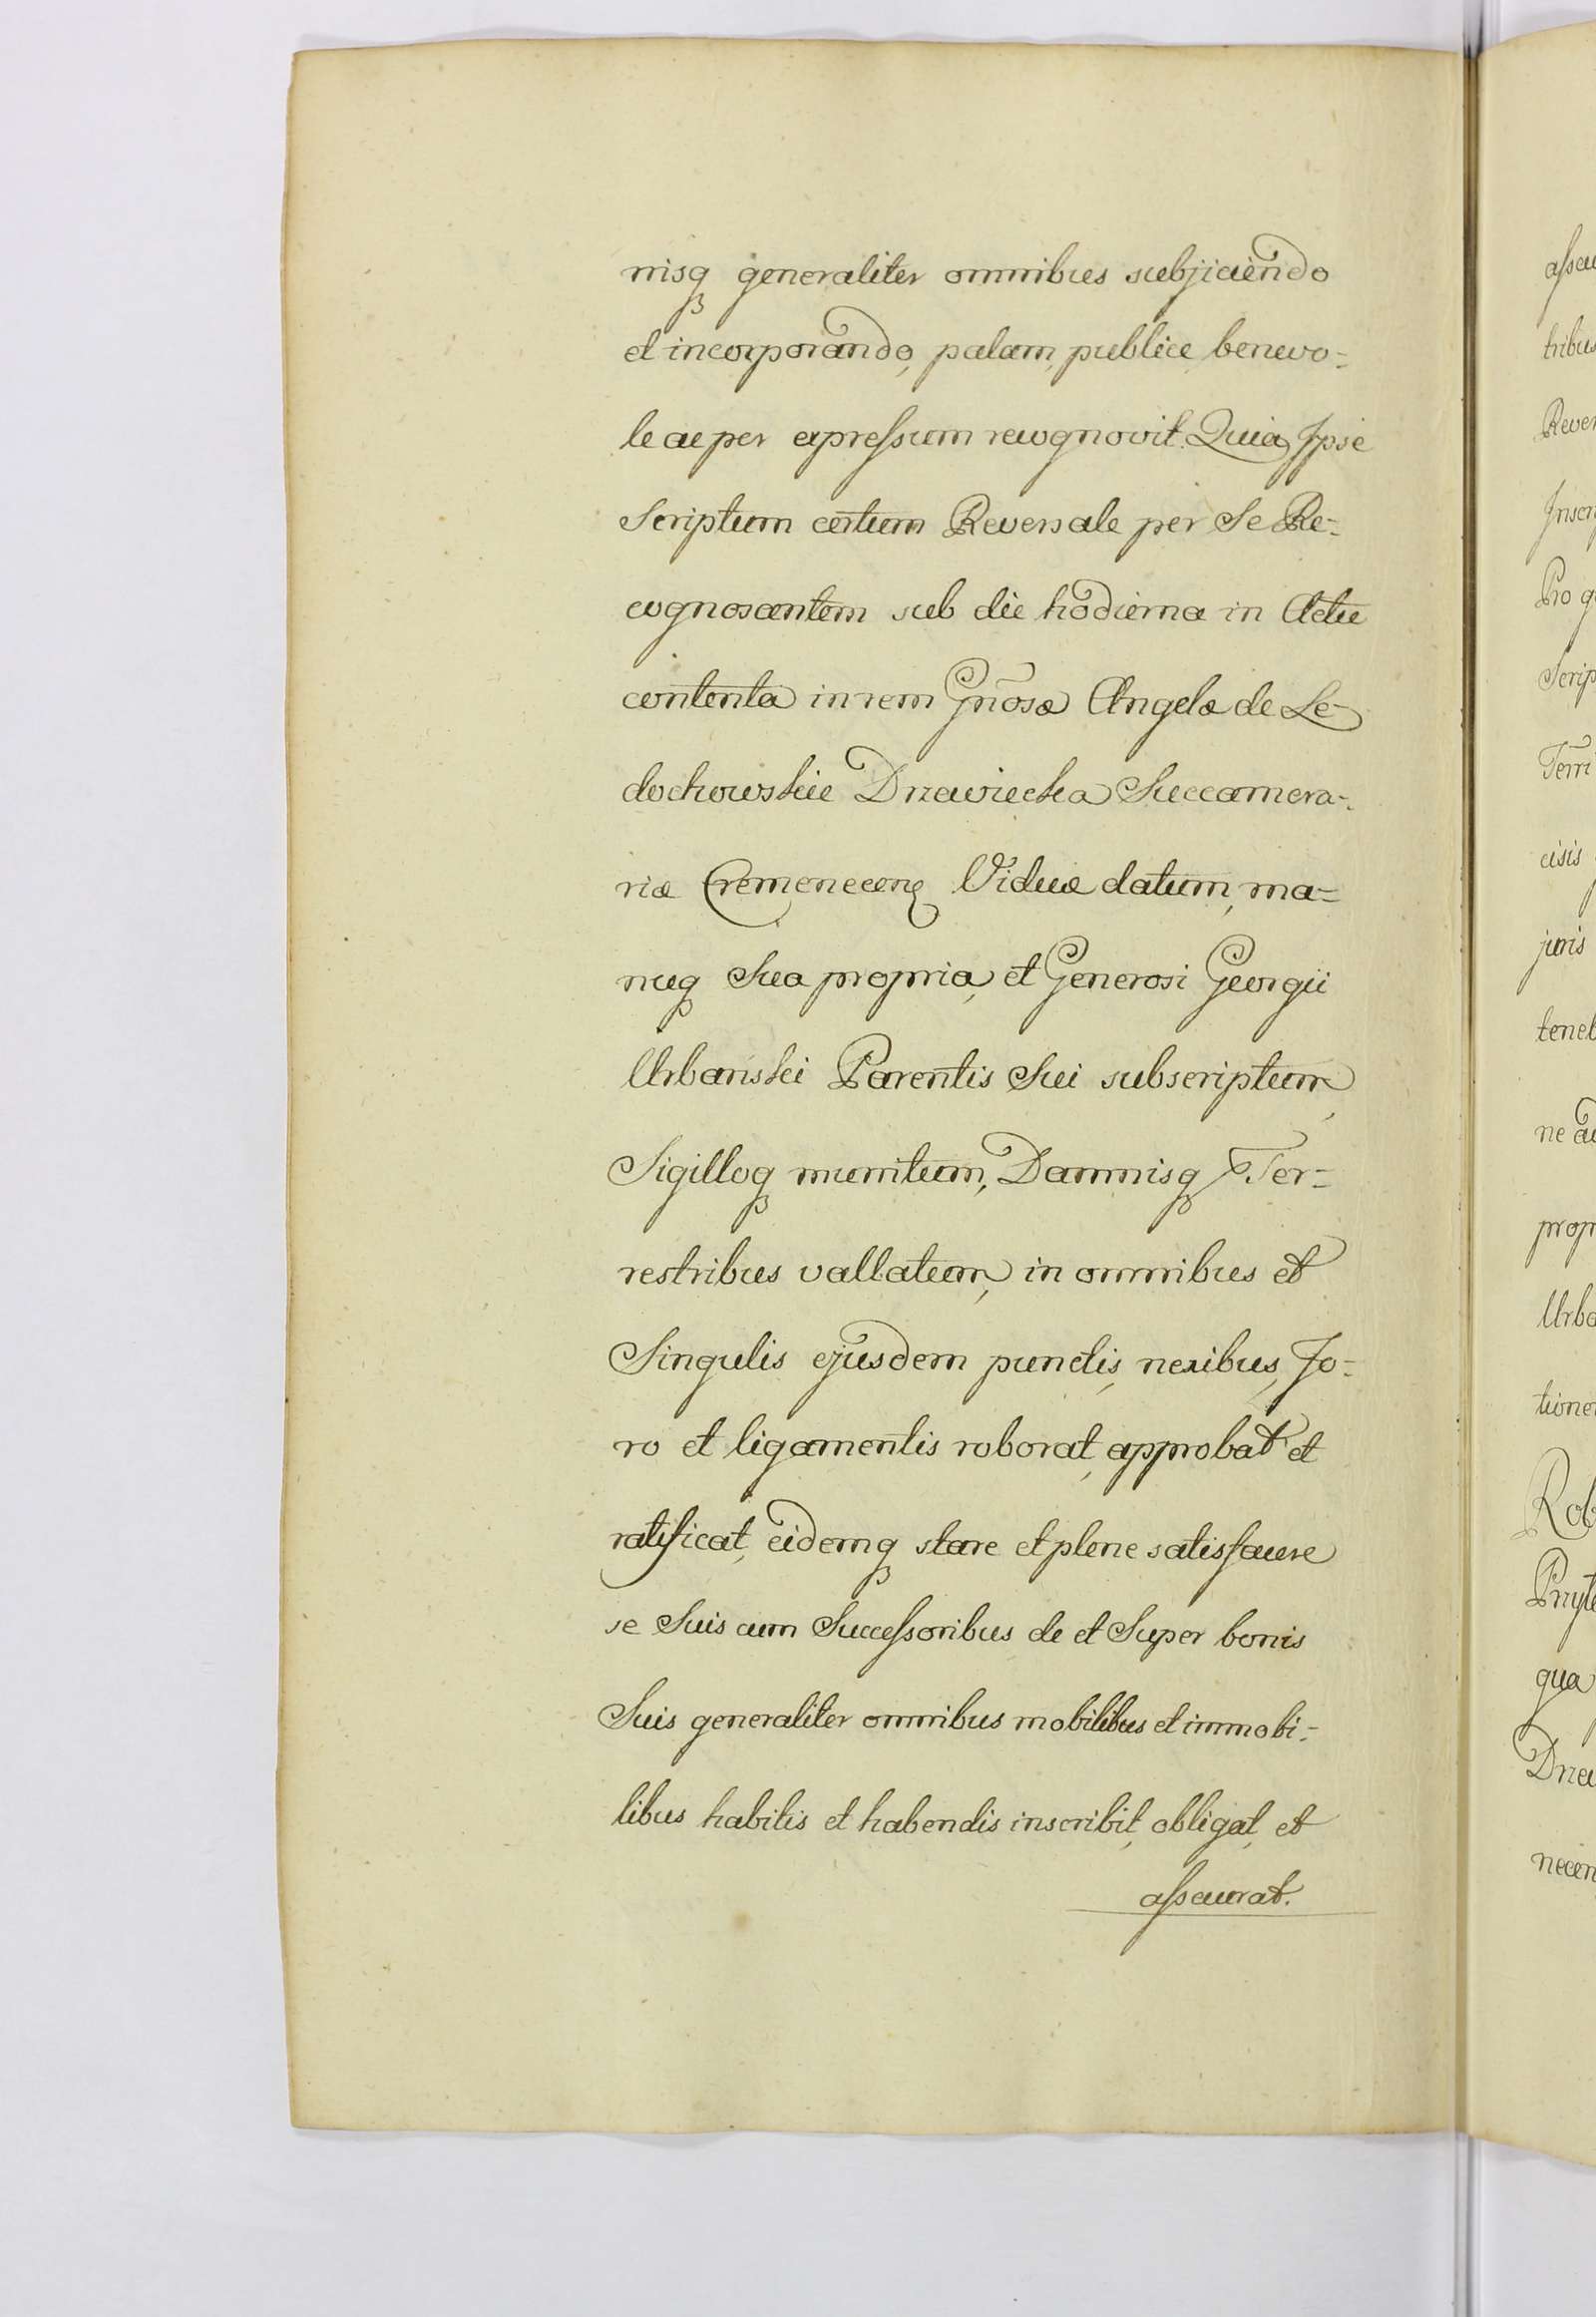 nisq generaliter omnibus subjiciendo
et incorporando, palam, publice, benevo-
le ac per expressum recognovit. Quia Ipse
Scriptum certum Reversale per Se Re-
cognoscentem sub die hodierna in Actu
contenta in rem Gnosæ Angelæ de Le-
dochowskie Drzewiecka Succamera-
riæ Cremenecens Viduæ datum, ma-
nuq Sua propria, et Generosi Georgii
Urbanski Parentis Sui subscriptum,
Sigilloq munitum, Damnisq Ter-
restribus vallatum, in omnibus et
Singulis ejusdem punctis, nexibus, Fo-
ro et ligamentis roborat, approbat et
ratificat, eidemq stare et plene satisfacere
se Suis cum Successoribus de et Super bonis
Suis generaliter omnibus mobilibus et immobi-
libus habitis et habendis inscribit, obligat, et
assecurat.
assecu
tribus
Rever
Inscr
Pro q
Scrip
Terri
cisis
juris
tene
ne
prop
Urba
tione
Rob
Przyt
qua
Drze
necen